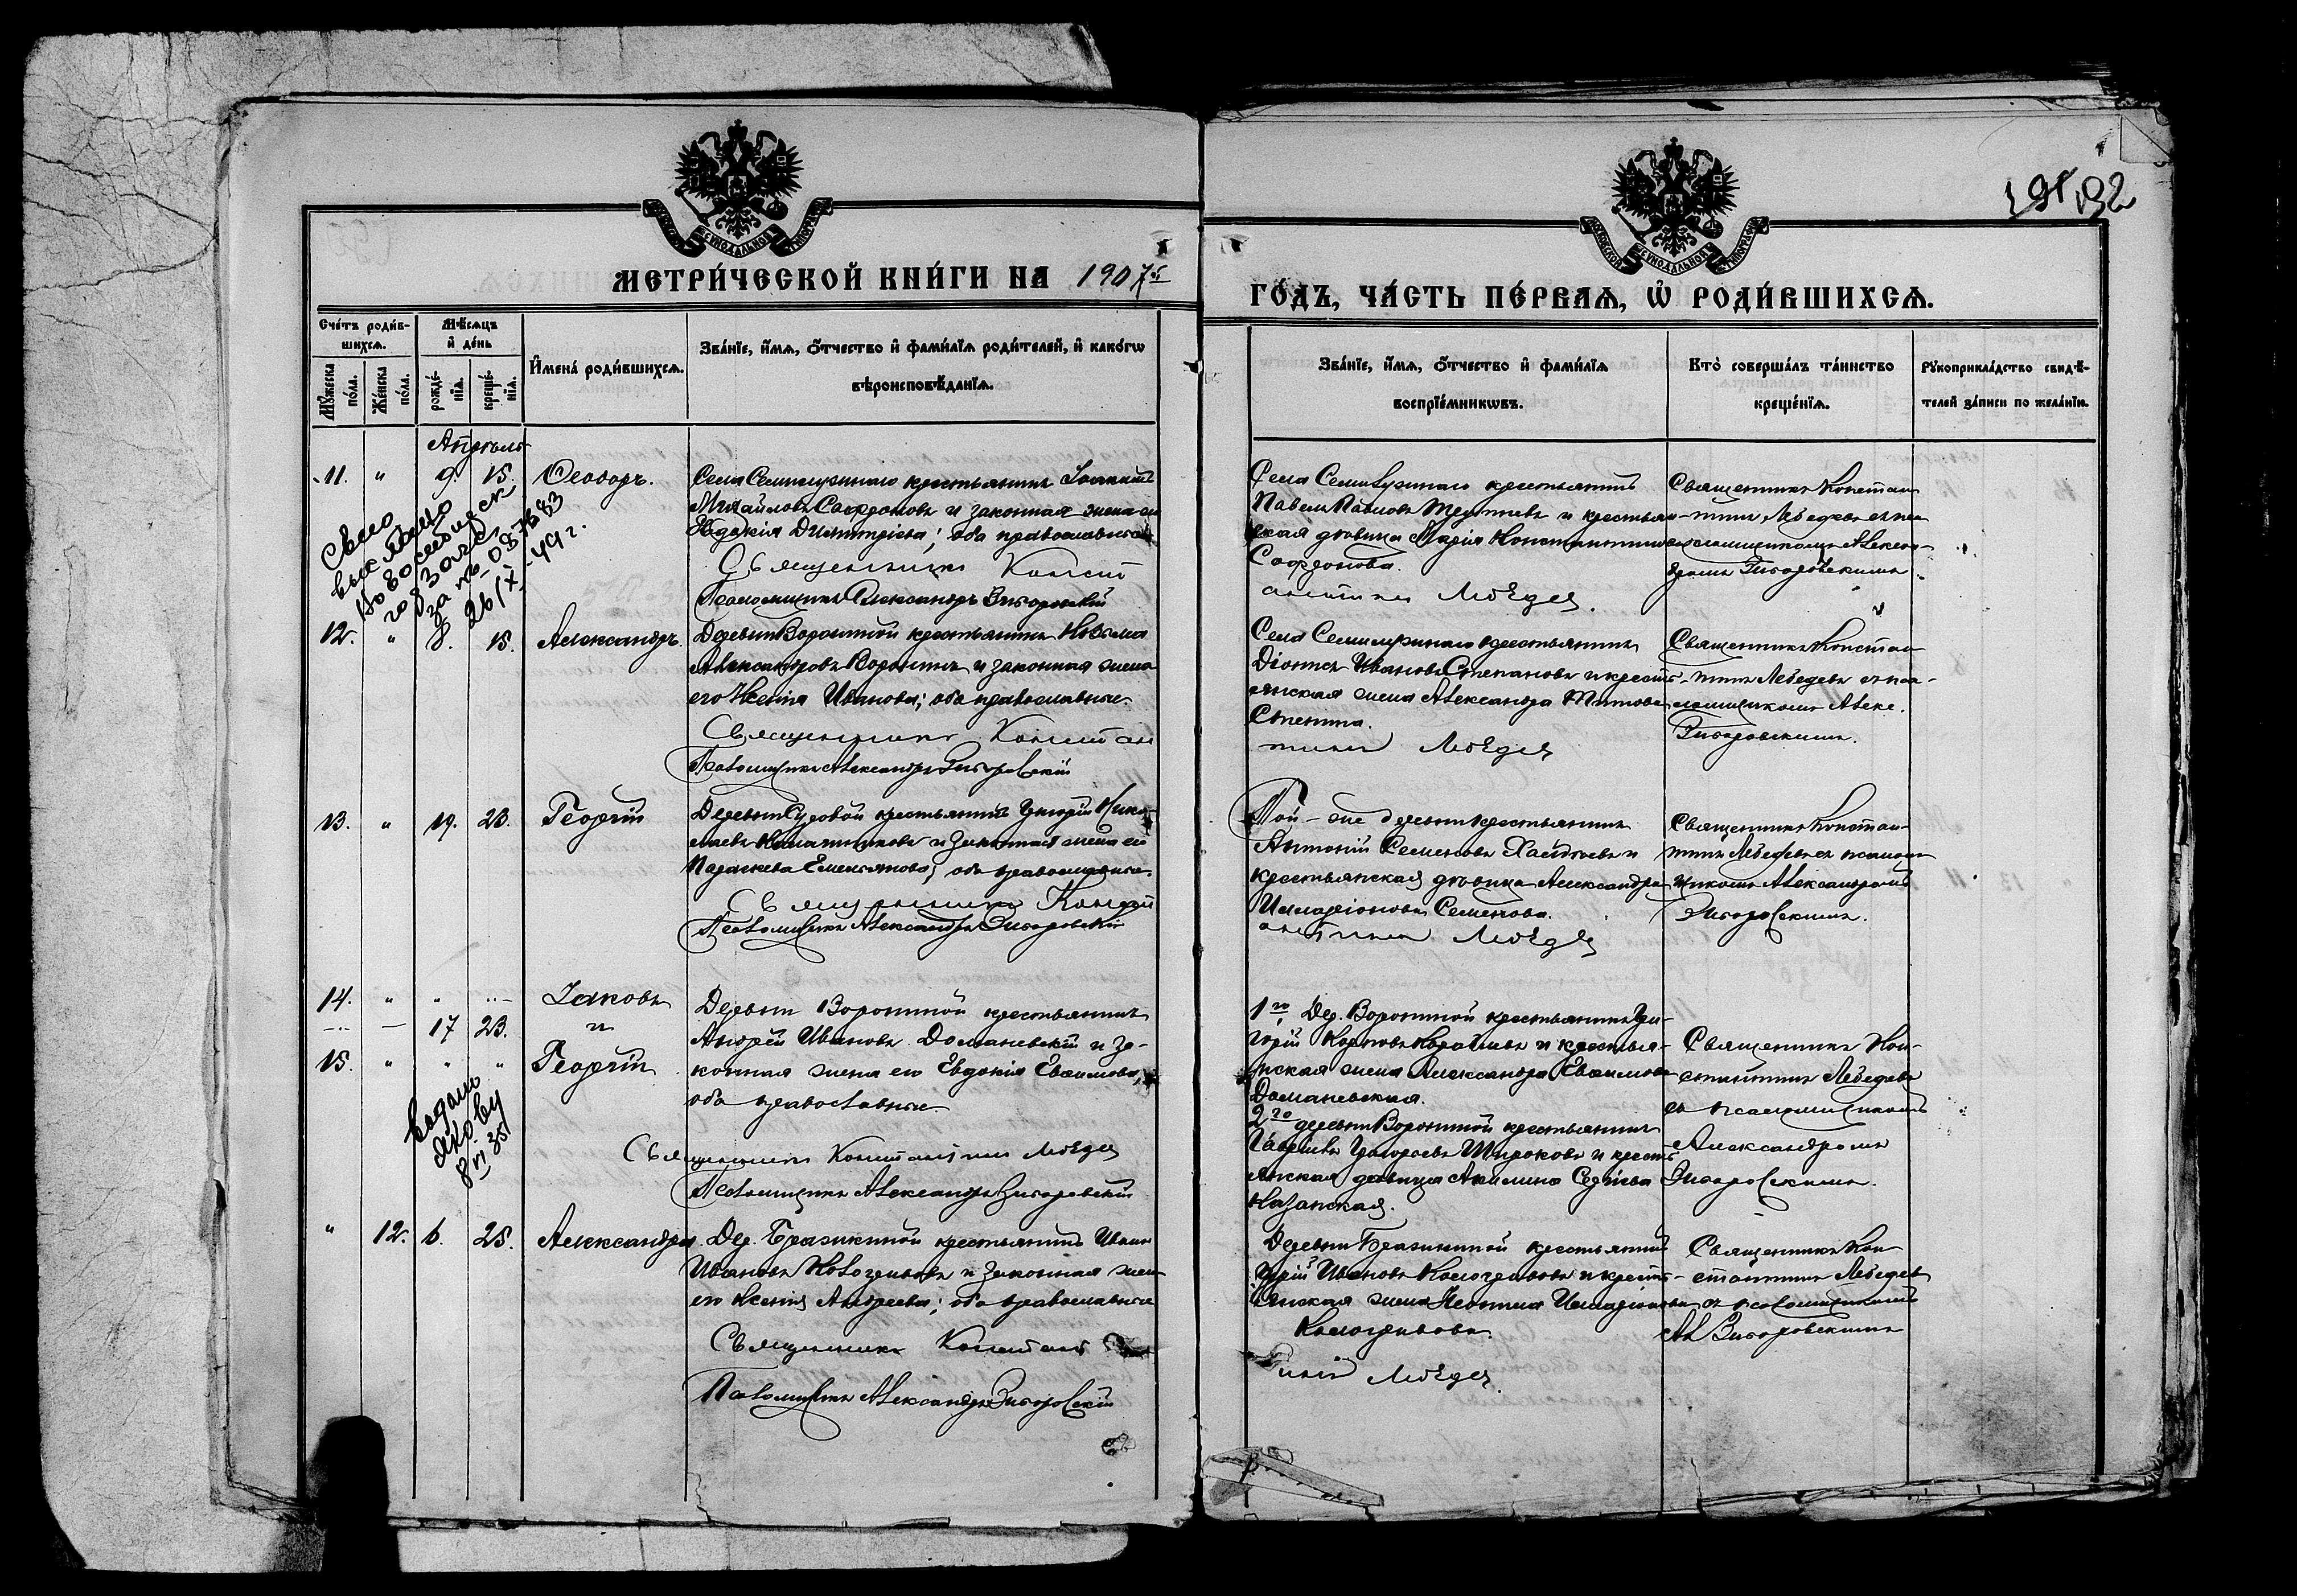 191 192
МЕТРИ́ЧЕСКОЙ КНИ́ГИ НА 1907й
ГО́ДЪ, ЧА́СТЬ ПЕ́РВАѦ, Ѡ РОДИ́ВШИХСѦ.
Сче́тъ роди́в-
шихсѧ.
Мꙋ́жеска
по́ла.
Же́нска
по́ла.
Мѣ́сѧцъ
и҆ де́нь
рожде́-
нїѧ.
креще́-
нїѧ.
И҆мена̀ роди́вшихсѧ.
Зва́нїе, и҆́мѧ, ѻ҆́тчество и҆ фами́лїѧ роди́телей, и҆ како́гѡ
вѣроисповѣ́данїѧ.
Зва́нїе, и҆́мѧ, ѻ҆́тчество и҆ фами́лїѧ
воспрїе́мникѡвъ.
Кто̀ соверша́лъ та́инство
креще́нїѧ.
Рꙋкоприкла́дство свидѣ́-
телей за́писи по жела́нїю.
Апрѣль
11. " 9. 15. Ѳеодоръ.
Села Семилужнаго крестьянинъ Іоакимъ
Михайловъ Сафроновъ и законная жена его
Евдокія Димитріева; оба православные
Священникъ Констан
Псаломщикъ Александръ Зигоровскій
Села Семилужнаго крестьянинъ
Павелъ Павловъ и крестьян-
ская дѣвица Марія Константинова
Сафронова.
Лебедев.
Священникъ Констан
тинъ Лебедевъ съ пса
ломщикомъ Алексан-
дромъ Зигоровскимъ.
Свид.
выслано
26/X-49 г.
12. " 8. 15. Александръ.
Деревни Ворониной крестьянинъ Козьма
Александровъ Воронинъ и законная жена
его Ксенія Иванова; оба православные.
Священникъ Констан
Псаломщикъ Александръ Зигоровскій
Села Семилужнаго крестьянинъ
Діонисъ Ивановъ Степановъ и кресть-
янская жена Александра Титова
Степина.
тинъ Лебедев
Священникъ Констан
тинъ Лебедевъ съ пса-
ломщикомъ Алекс.
Зигоровскимъ.
13. " 19. 23. Георгій
Деревни Суровой крестьянинъ Григорій Нико-
лаевъ и законная жена его
Параскева Емельянова; оба православные.
Священникъ Конст
Псаломщикъ Александръ Зигоровскій
Той-же деревни крестьянинъ
Антоній Семеновъ и
крестьянская дѣвица Александра
Илларіонова Семенова.
антинъ Лебедев
Священникъ Констан-
тинъ Лебедевъ съ псалом
щикомъ Александромъ
Зигоровскимъ.
14. " " " Іаковъ
17 23. и
15. " " " Георгій
Деревни Ворониной крестьянинъ
Андрей Ивановъ Доманевскій и за-
конная жена его Евдокія Евѳимова,
оба православные.
Священникъ Константинъ Лебедев
Псаломщикъ Александръ Зигоровскій
1го Дер. Ворониной крестьянинъ Гри-
горій Карповъ и крестья-
нская жена Александра Евѳимова
Доманевская.
2го деревни Ворониной крестьянинъ
Гавріилъ Григорьевъ Широковъ и кресть-
янская дѣвица Акилина Сергіева
Казанская.
Священникъ Кон-
стантинъ Лебедевъ
съ псаломщикомъ
Александромъ
Зигоровскимъ.
выдано
Якову
8/VI 35
" 12. 6. 25. Александра.
Дер. Бражкиной крестьянинъ Иванъ
Ивановъ Кологривовъ и законная жена
его Ксенія Андреева; оба православные
Священникъ Констант
Псаломщикъ Александръ Зигоровскій
Деревни Бражкиной крестьянинъ
Ивановъ Кологривовъ и кресть-
янская жена Неонила Илларіонова
Кологривова.
иній Лебедев.
Священникъ Кон
стантинъ Лебедевъ
съ псаломщикомъ
Ал Зигоровскимъ